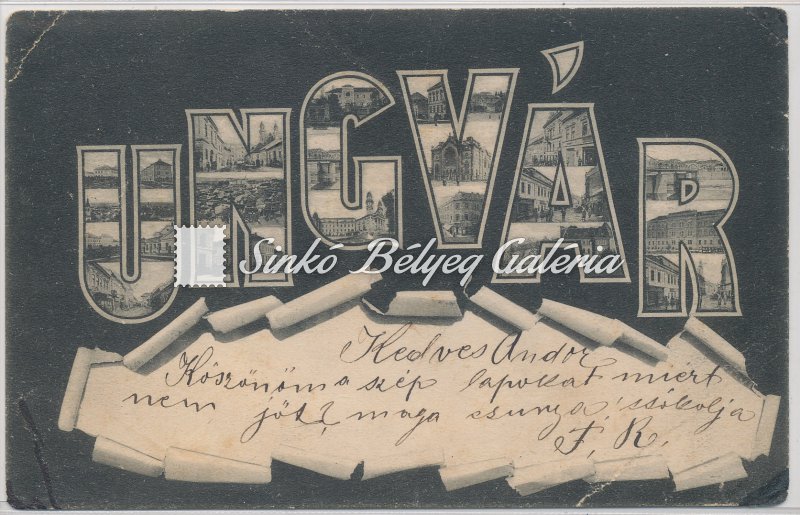 UNGVÁR
Sinkó Bélyeg Galéria
Kedves Andor
Köszönöm a szép lapokat miért
nem jöt? maga csunya! csókolja
F. R.